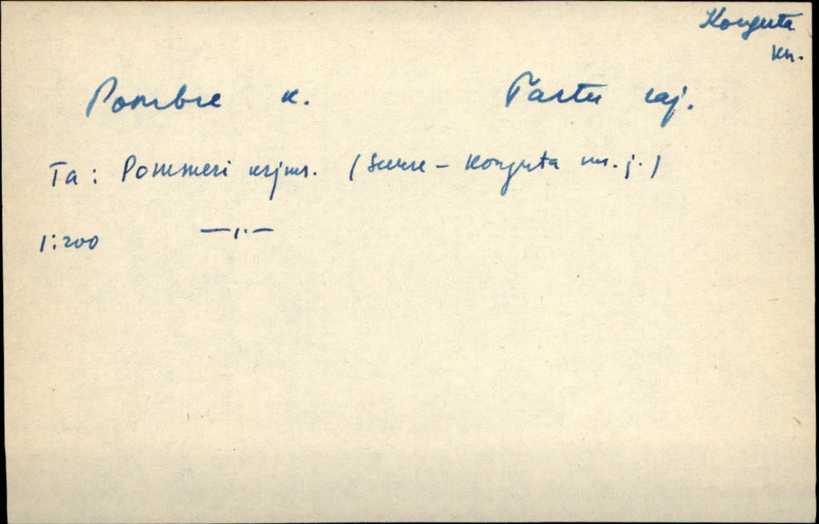 Konguta
kn.
Pombre k. Tartu raj.
Ta: Pommeri krjms. (Suure-Konguta ms. j.)
1:200 —,,—